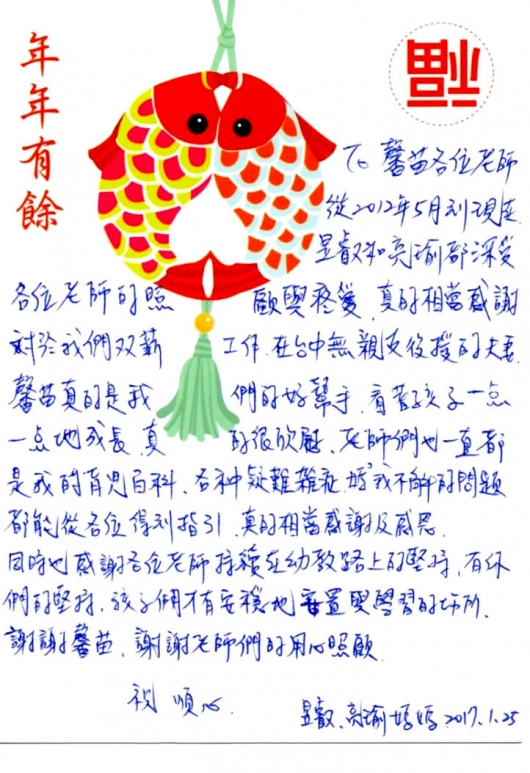 年年有餘
福
To 馨苗各位老師
從2012年5月到現在
昱叡和亮瑜都深受
各位老師的照顧與疼愛,真的相當感謝
對於我們双薪工作,在台中無親友後援的夫妻
馨苗真的是我們的好幫手,看著孩子一点
一点地成長,真的很欣慰,老師們也一直都
是我的育兒百科,各种疑難雜症,媽我不解的問題
都能從各位得到指引,真的相當感謝及感恩.
同時也感謝各位老師持續在幼教路上的堅持,有你
們的堅持,孩子們才有安穩地 置與學習的場所.
謝謝馨苗,謝謝老師們的用心照顧
祝 順心.
昱叡、亮瑜媽媽 2017.1.25